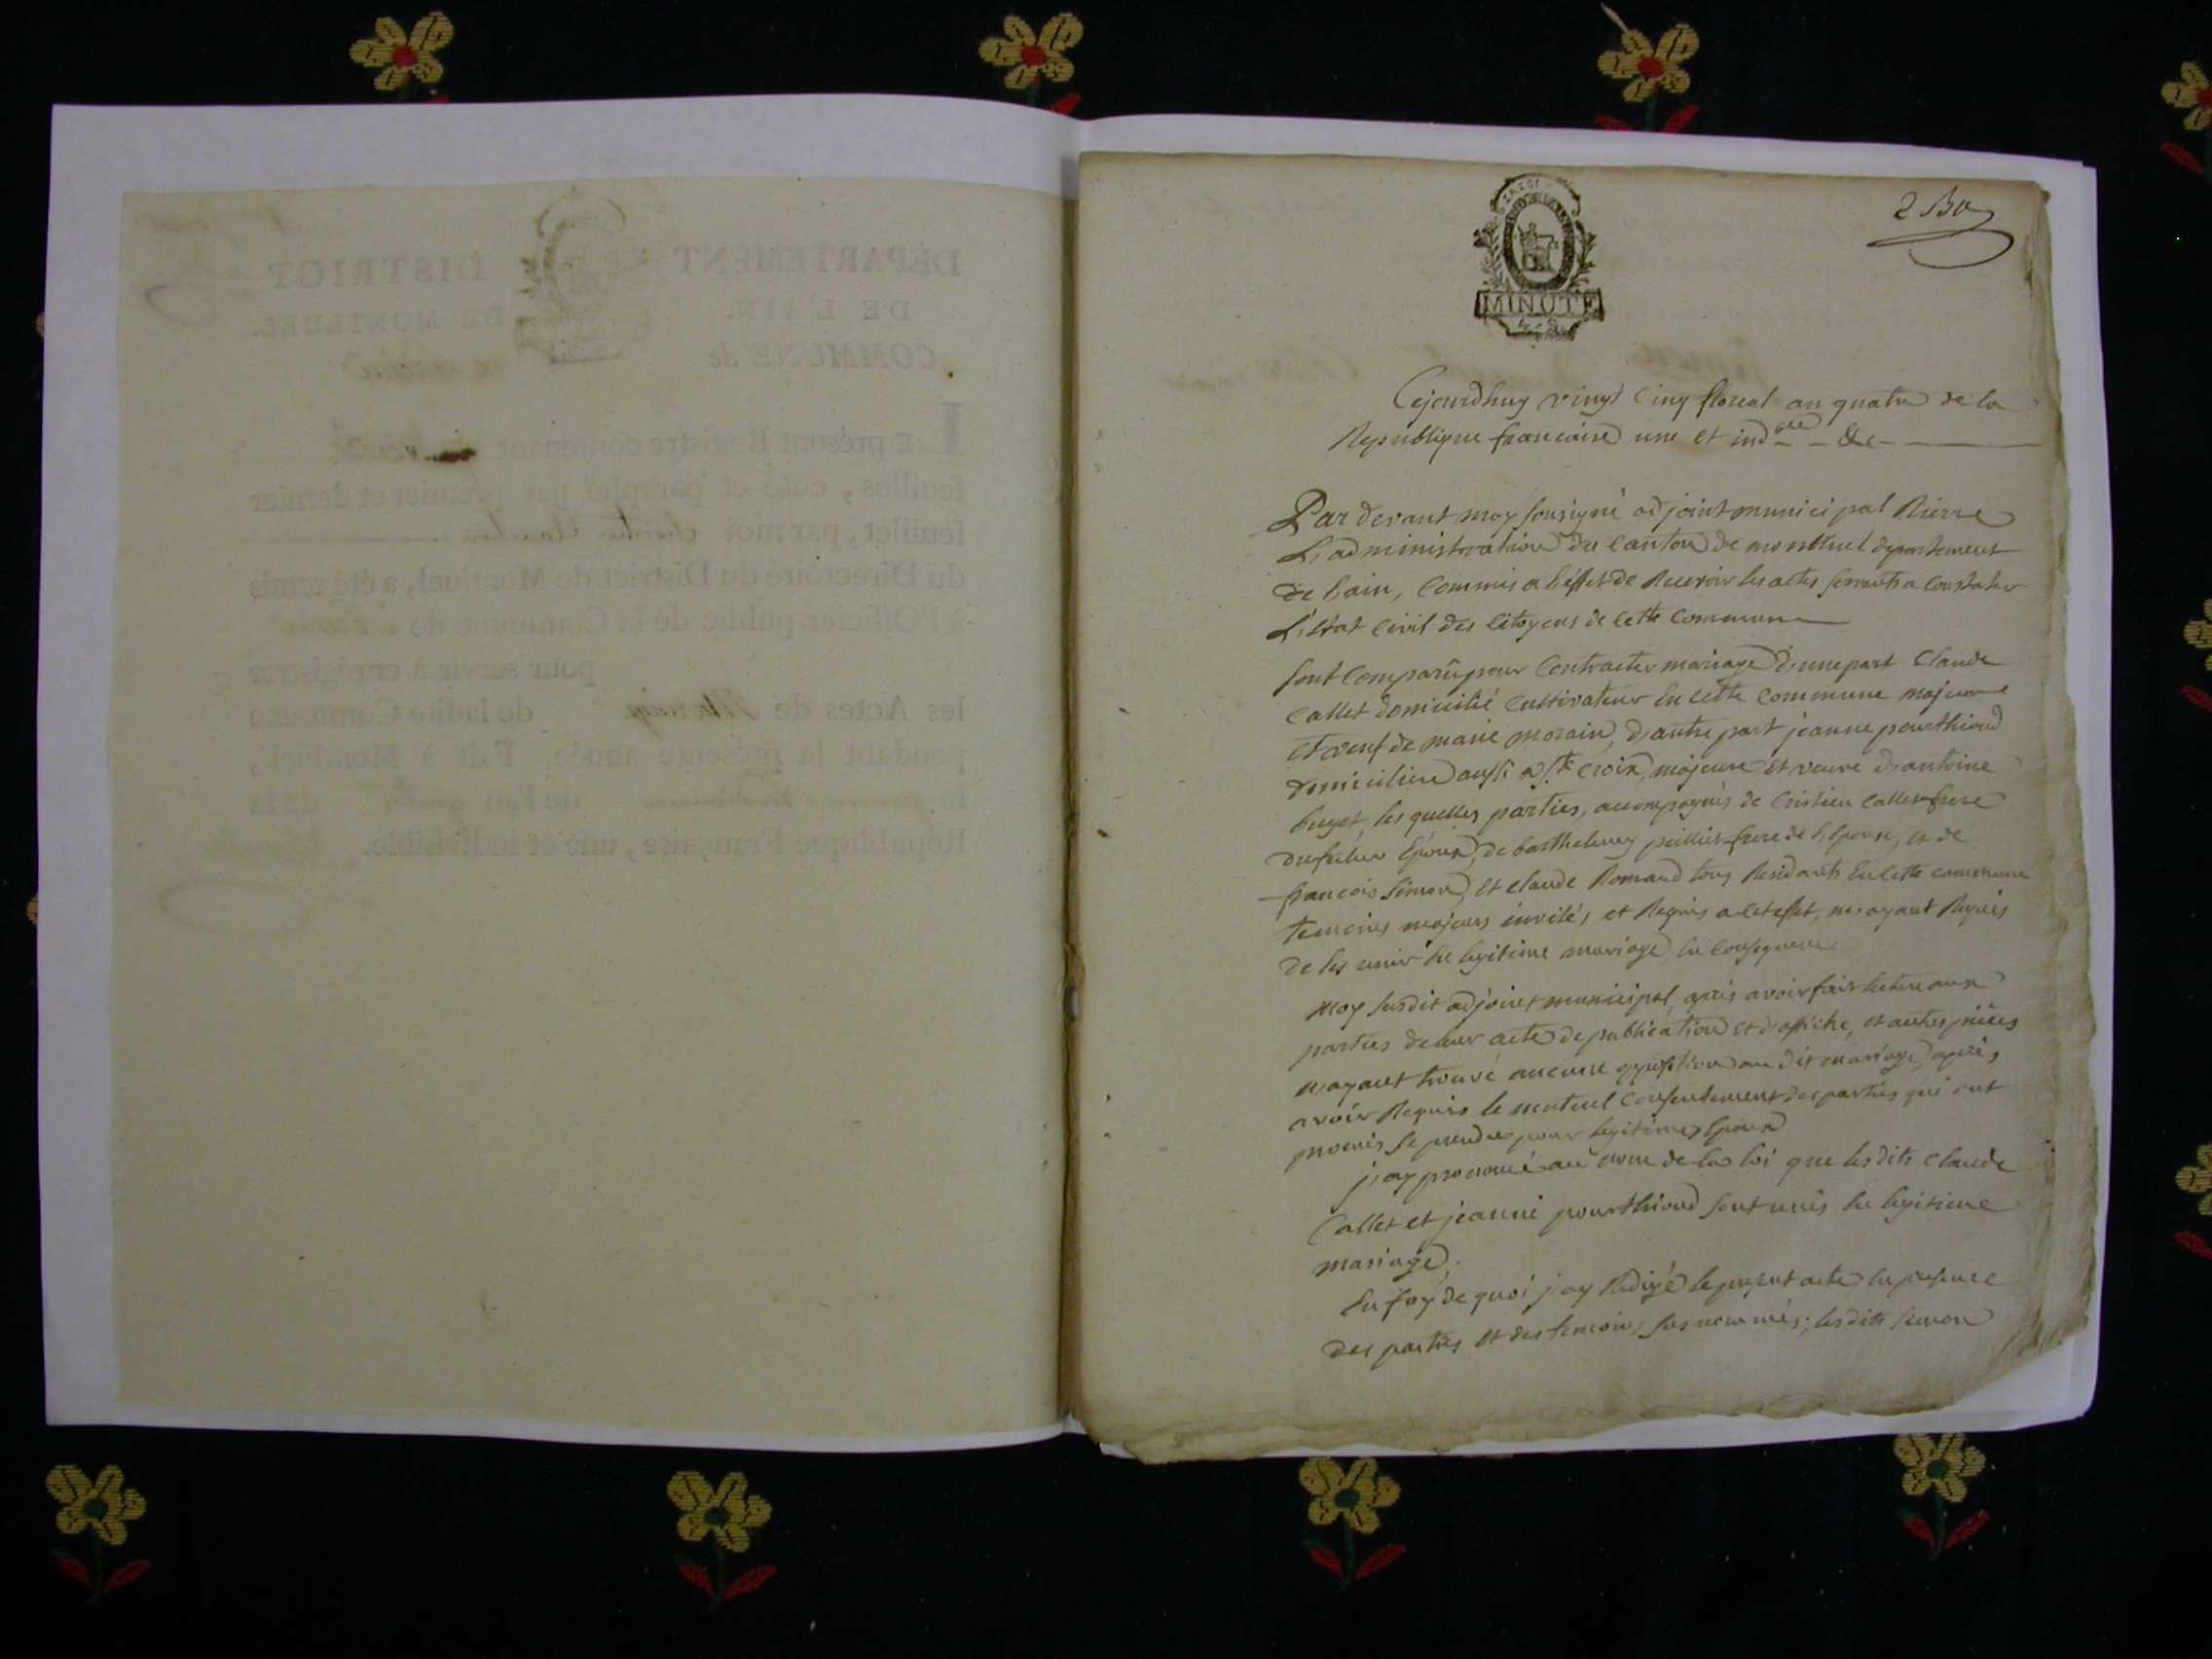 MINUTE
2
Cejourdhuy vingt cinq floreal an quatre de la
Republique francaise une et ind ble &c
Par devant moy sousigné adjoint municipal
L'administration du canton de montluel departement
de Lain, commis a l'effet de Recevoir les actes servants a constater
L'Etat civil des citoyens de cette commune
sont comparû pour contracter mariage d'une part claude
callet domicilié cultivateur en cette commune majeur
et veuf de marie morain, d'autre part jeanne pourthioud
domiciliée aussi a Ste croix, majeure et veuve d'antoine
buget, les quelles parties, accompagnés de callet frere
du futur Epoux, de barthelemy frere de L'Epouse, et de
francois simon, et claude Romand tous Residants en cette commune
temoins majeurs invités et Requis a cet effet, ayant Requis
de les unir en legitime mariage en consequence
moy susdit adjoint municipal, après avoir fait lecture aux
parties de leur acte de publication et d'affiche, et autres pièces
n'ayant trouvé aucune opposition au dit mariage, après
avoir Requis le mutuel consentement des parties qui ont
promis se prendre pour legitimes Epoux
j'ay prononcé au nom de la loi que lesdits claude
callet et jeanne pourthioud sont unis en legitime
mariage.
En foy de quoi j'ay Redigé le present acte en presence
des parties et des temoins susnommés; lesdits simon
DÉPARTEMENT
DE L'AIN.
COMMUNE de
DISTRICT
DE MONTLUEL.
LE présent Registre contenant
feuilles, coté et paraphé par premier et dernier
feuillet, par moi
du Directoire du District de Montluel, a été remis
à l'Officier public de la Commune de
pour servir à enregistrer
les Actes de Mariage de ladite Commune
pendant la présente année. Fait à Montluel,
de l'an de la
République Française, une et indivisible.